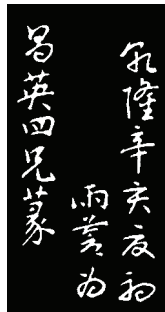 乾隆辛亥夏初
雨為
昌英四兄篆